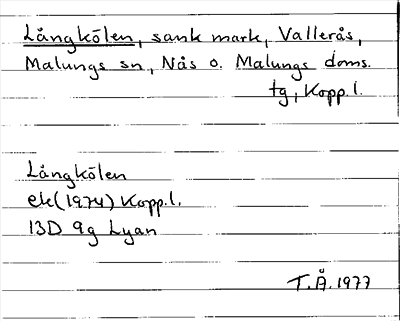 Långkölen, sank mark, Vallerås,
Malungs sn, Nås o. Malungs doms.
tg, Kopp.l.
Långkölen
ek(1974) Kopp.l.
13D 9g Lyan
T.Å.1977